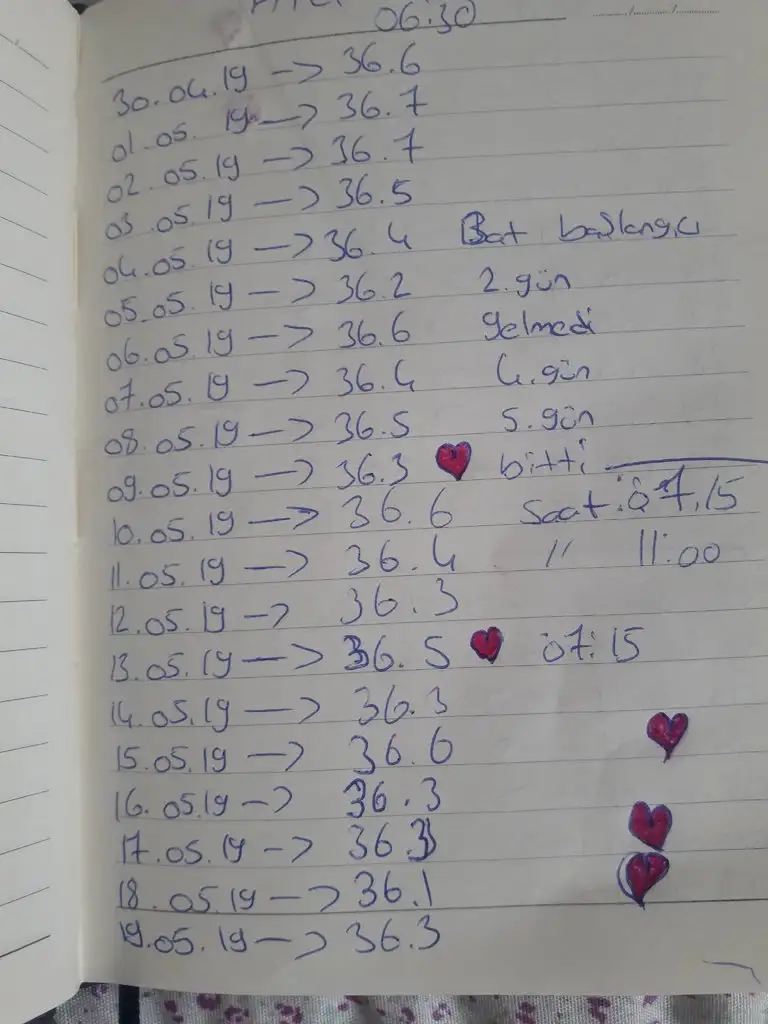 06:30
30.04.19 -> 36.6
01.05.19 -> 36.7
02.05.19 -> 36.7
03.05.19 -> 36.5
04.05.19 -> 36.4 Bat başlangıcı
05.05.19 -> 36.2 2.gün
06.05.19 -> 36.6 gelmedi
07.05.19 -> 36.4 4.gün
08.05.19 -> 36.5 5.gün
09.05.19 -> 36.3 bitti
10.05.19 -> 36.6 Saat:07.15
11.05.19 -> 36.4 " 11:00
12.05.19 -> 36.3
13.05.19 -> 36.5 07:15
14.05.19 -> 36.3
15.05.19 -> 36.6
16.05.19 -> 36.3
17.05.19 -> 36.3
18.05.19 -> 36.1
19.05.19 -> 36.3